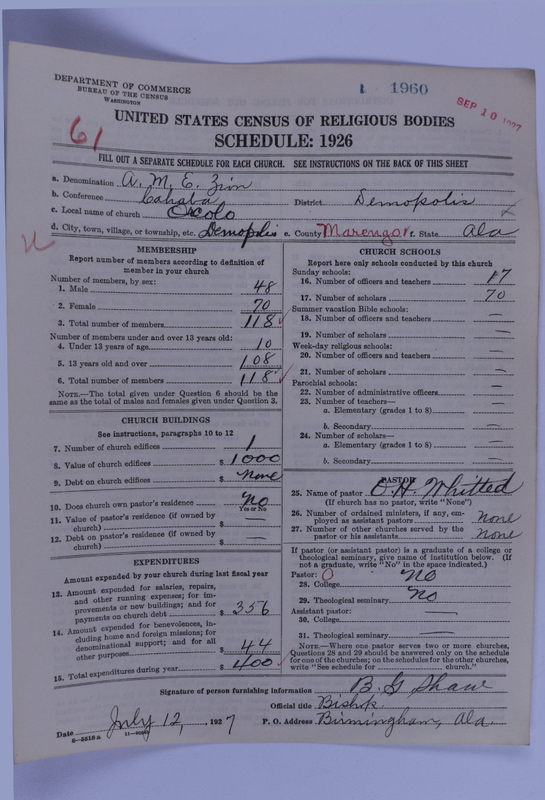 DEPARTMENT OF COMMERCE
BUREAU OF THE CENSUS
WASHINGTON
1 1960
SEP 10 1927
61
UNITED STATES CENSUS OF RELIGIOUS BODIES
SCHEDULE: 1926
FILL OUT A SEPARATE SCHEDULE FOR EACH CHURCH. SEE INSTRUCTIONS ON THE BACK OF THIS SHEET
a. Denomination A. M. E. Zion
b. Conference Cahaba District Demopolis
c. Local name of church
d. City, town, village, or township, etc. Demopolis e. County Marengo f. State Ala
MEMBERSHIP
Report number of members according to definition of
member in your church
Number of members, by sex:
1. Male 48
2. Female 70
3. Total number of members 118
Number of members under and over 13 years old:
4. Under 13 years of age 10
5. 13 years old and over 108
6. Total number of members 118
NOTE.—The total given under Question 6 should be the
same as the total of males and females given under Question 3.
CHURCH BUILDINGS
See instructions, paragraphs 10 to 12
7. Number of church edifices 1
8. Value of church edifices $ 1000
9. Debt on church edifices $ None
10. Does church own pastor's residence No
Yes or No
11. Value of pastor's residence (if owned by
church) $ —
12. Debt on pastor's residence (if owned by
church) $ —
EXPENDITURES
Amount expended by your church during last fiscal year
13. Amount expended for salaries, repairs,
and other running expenses; for im-
provements or new buildings; and for
payments on church debt $ 356
14. Amount expended for benevolences, in-
cluding home and foreign missions; for
denominational support; and for all
other purposes $ 44
15. Total expenditures during year $ 400
CHURCH SCHOOLS
Report here only schools conducted by this church
Sunday schools:
16. Number of officers and teachers 17
17. Number of scholars 70
Summer vacation Bible schools:
18. Number of officers and teachers —
19. Number of scholars —
Week-day religious schools:
20. Number of officers and teachers —
21. Number of scholars —
Parochial schools:
22. Number of administrative officers —
23. Number of teachers—
a. Elementary (grades 1 to 8) —
b. Secondary —
24. Number of scholars—
a. Elementary (grades 1 to 8) —
b. Secondary —
PASTOR
25. Name of pastor O. H. Whitted
(If church has no pastor, write "None")
26. Number of ordained ministers, if any, em-
ployed as assistant pastors None
27. Number of other churches served by the
pastor or his assistants None
If pastor (or assistant pastor) is a graduate of a college or
theological seminary, give name of institution below. (If
not a graduate, write "No" in the space indicated.)
Pastor: 0
28. College No
29. Theological seminary No
Assistant pastor:
30. College
31. Theological seminary —
NOTE.—Where one pastor serves two or more churches,
Questions 28 and 29 should be answered only on the schedule
for one of the churches; on the schedules for the other churches,
write "See schedule for church."
Signature of person furnishing information B. G. Shaw
Official title Bishop
Date July 12, 1927 P. O. Address Birmingham, Ala.